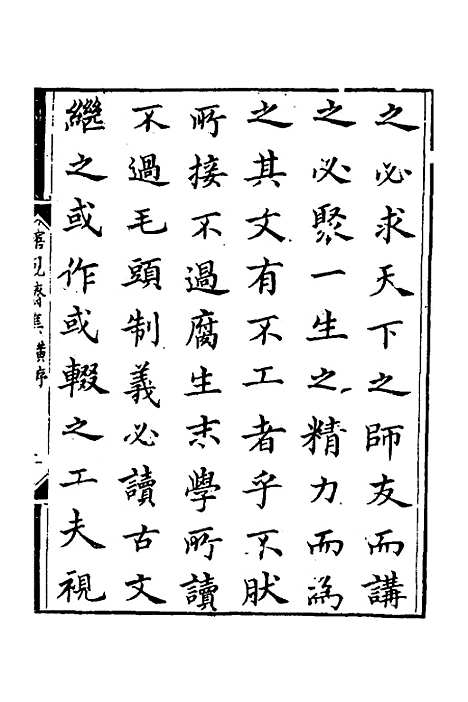 之必求天下之師友而講
之必聚一生之精力而為
之其文有不工者乎不肰
所接不過腐生末學所讀
不過毛頭制義必讀古文
繼之或作或輟之工夫視